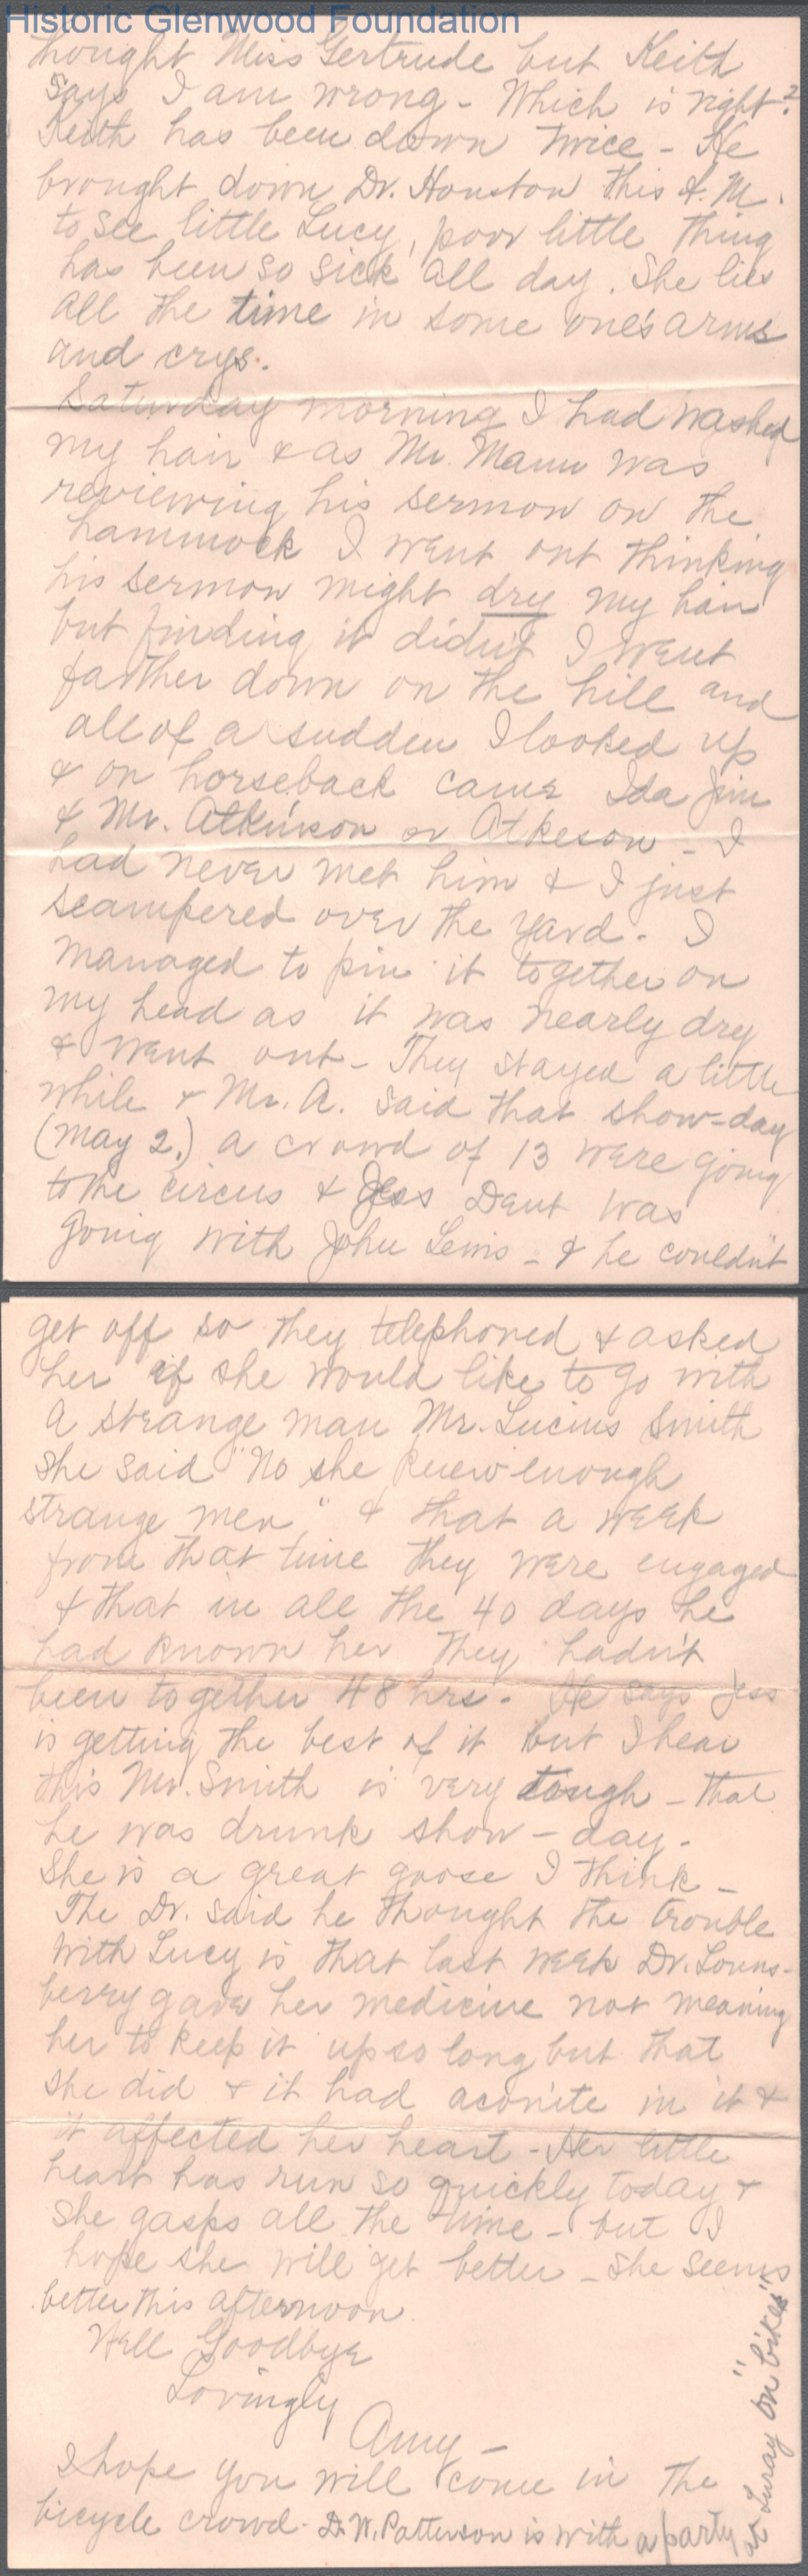 Historic Glenwood Foundation
thought Miss Gertrude but Keith
says I am wrong - Which is right?
Keith has been down twice - He
brought down Dr. Houston this A.M.
to see little Lucy, poor little thing
has been so sick all day. She lies
all the time in some one's arms
and crys.
Saturday morning I had washed
my hair & as Mr. Mann was
reviewing his sermon on the
hammock I went out thinking
his sermon might dry my hair
but finding it didn't I went
farther down on the hill and
all of a sudden I looked up
& on horseback came Ida Jim
& Mr. Atkinson or Atkeson - I
had never met him & I just
scampered over the yard. I
managed to pin it together on
my head as it was nearly dry
& went out - They stayed a little
while & Mr. A. said that show-day
(May 2.) a crowd of 13 were going
to the circus & Jess Dent was
going with John Lewis - & he couldn't
get off so they telephoned & asked
her if she would like to go with
a strange man Mr. Lucius Smith
she said "No she knew enough
strange men" & that a week
from that time they were engaged
& that in all the 40 days he
had known her they hadn't
been together 48 hrs. He says Jess
is getting the best of it but I hear
this Mr. Smith is very tough - that
he was drunk show-day.
She is a great goose I think -
The Dr. said he thought the trouble
with Lucy is that last week Dr. Louns-
berry gave her medicine not meaning
her to keep it up so long but that
she did & it had aconite in it &
it affected her heart - Her little
heart has run so quickly today &
she gasps all the time - but I
hope she will get better - she seems
better this afternoon.
Well Goodbye
Lovingly
Amy -
I hope you will come in the
bicycle crowd. D.W. Patterson is with a party
at Luray on "bikes"